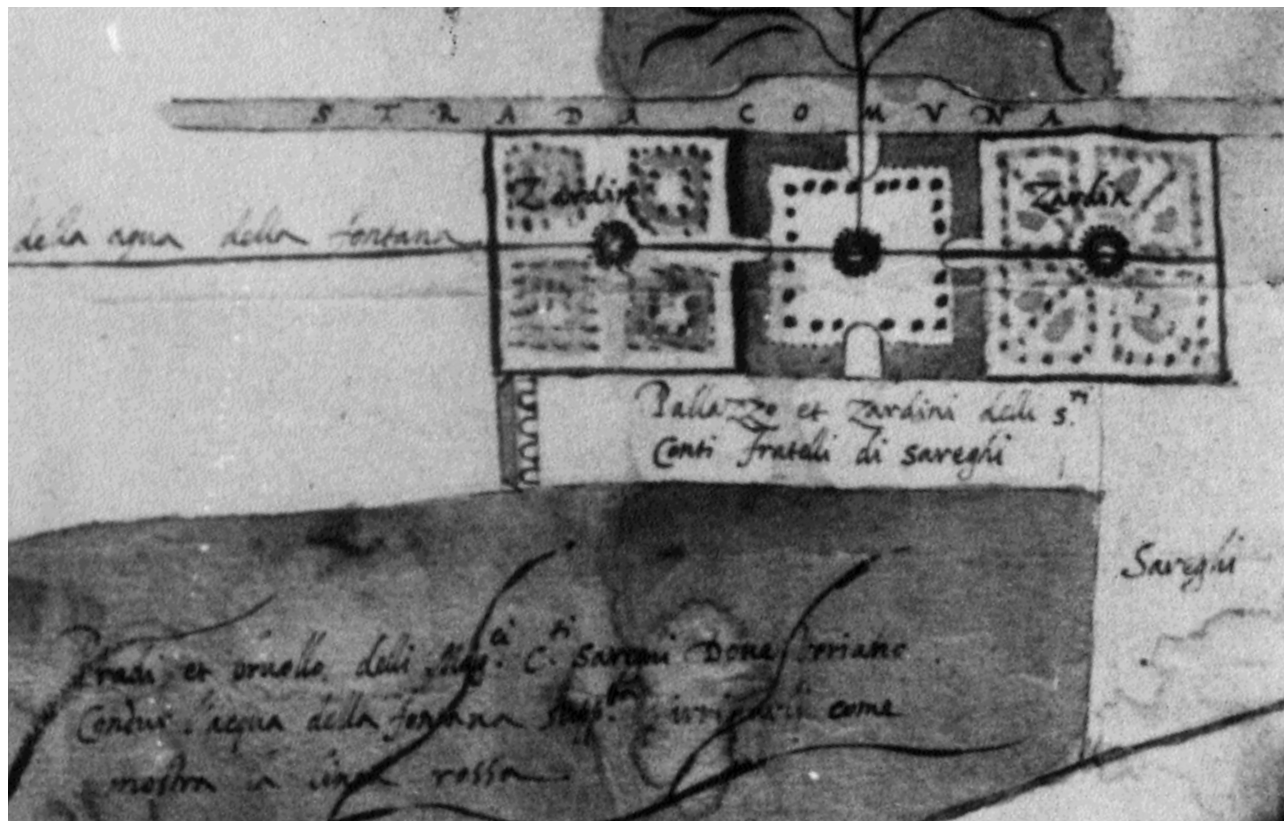 STRADA COMVNA
Zardin
Zardin
della aqua della fontana
Pallazzo et Zardini delli s.ri
Conti fratelli di Sareghi
Sareghi
Pradi et bruollo delli Mag.ci C.ti Sareghi Doue
Condur l'acqua della fontana come
mostra la linea rossa